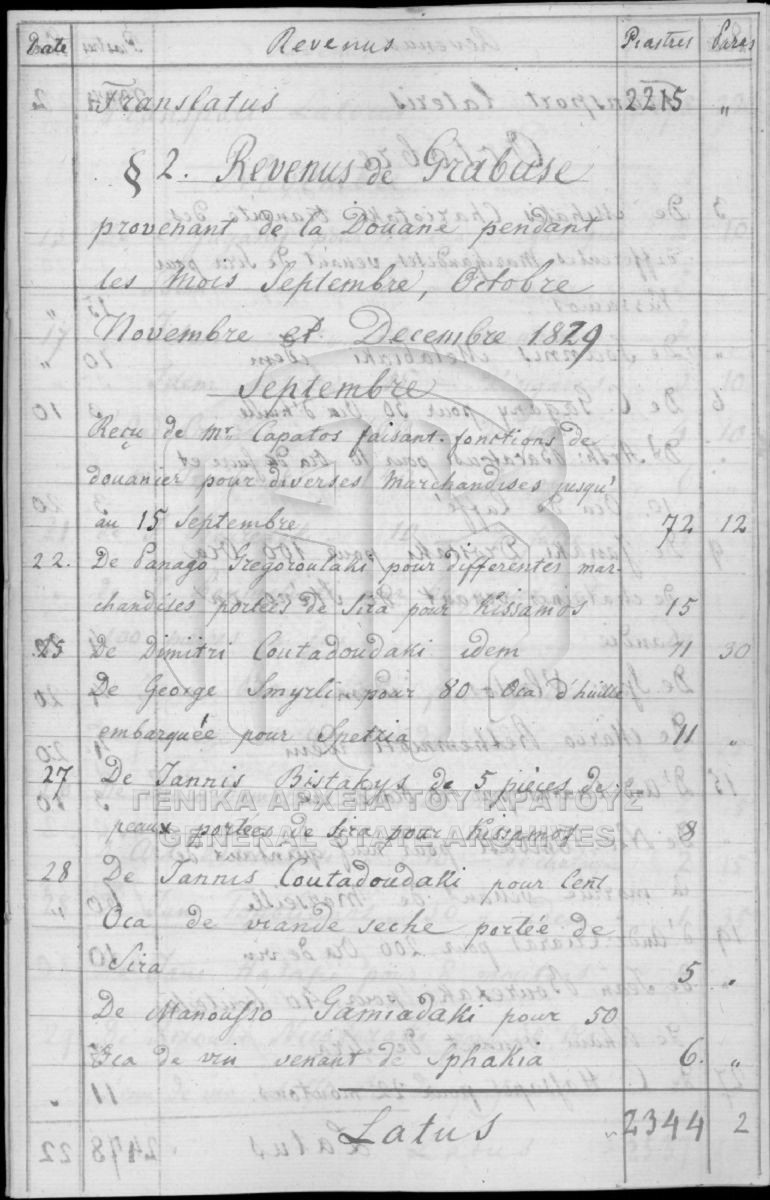 Date Revenus Piastres Paras
Translatus 2215 "
§ 2. Revenus de Grabuse
provenant de la Douane pendant
les mois Septembre, Octobre
Novembre et Decembre 1829
Septembre
Reçu de Mr Capatos faisant fonctions de
douanier pour diverses marchandises jusqu'
au 15 Septembre 72 12
22. De Panago Gregoroulaki pour differentes mar-
chandises portées de Sira pour Kissamos 15
25 De Dimitri Coutadoudaki idem 11 30
De George Smyrli pour 80 Oca d'huille
embarquée pour Spetzia 11 "
27 De Jannis Bistakys de 5 pièces de
peaux portées de Sira pour Kissamos 8
ΓΕΝΙΚΑ ΑΡΧΕΙΑ ΤΟΥ ΚΡΑΤΟΥΣ
GENERAL STATE ARCHIVES
28 De Jannis Coutadoudaki pour Cent
Oca de viande seche portée de
Sira 5 "
De Manousso Gamiadaki pour 50
Oca de vin venant de Sphakia 6. "
Latus 2344 2